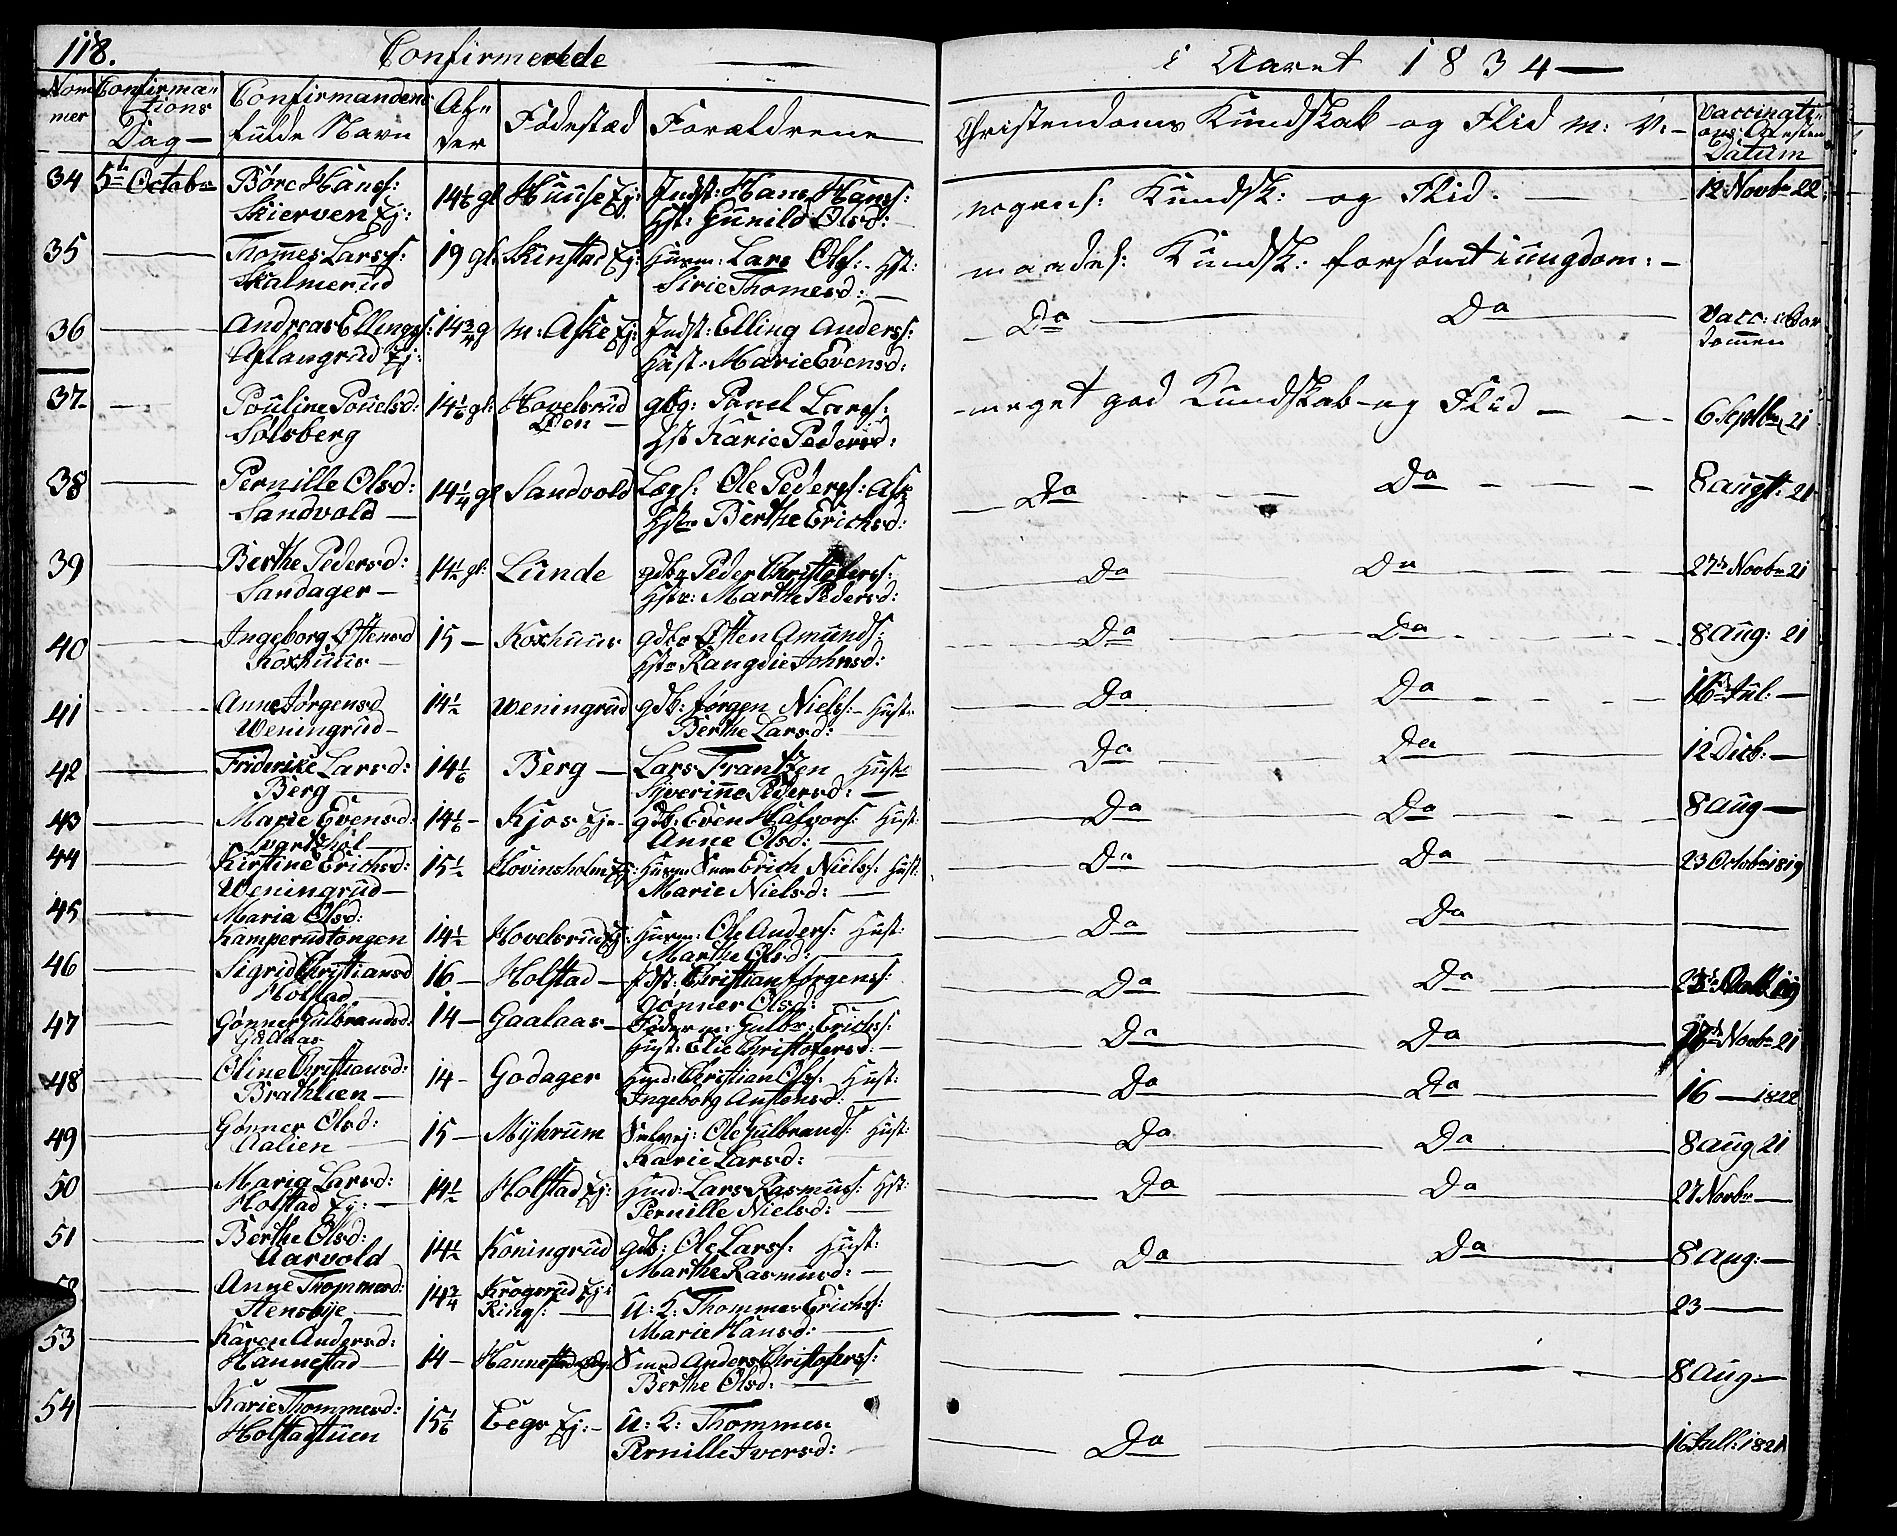 118. Confirmerede — i Aaret 1834 —
Nommer Confirmations Dag — Confirmandens fulde Navn Alder Fødestæd Forældrene Christendoms Kundskab og Flid m: V: — Vaccinations Datum
34 5te Octobr Børe Hanss: Skierven Ej: 14 1/6 gl Huuse Ej: Indst: Hans Hanss: Hst: Gunild Olsd: Kundsk: og Flid. — 12 Novbr 22
35 — Thomes Larss: Skalmerud 19 gl. Skinstad Ej: Huusm: Lars Olss: Hst: Sirie Thomesd: — maadel: Kundsk: forsømt i ungdom: —
36 — Andreas Ellingss: Aslangrud Ej: 14 3/4 g m: Aske Ej: Indst: Elling Anderss: Hust. Marie Evensd: Do — Do Vacc: i
37 — Pouline Pouelsd: Sølsberg 14 1/6 gl: Hovelsrud gbg: Pouel Larss: Hst Karie Pedersd: meget god Kundskab og Flid — 6 Septbr 21
38 — Pernille Olsd: Sandvold — 14 1/4 gl Sandvold Ole Pederss: Hstr Berthe Erichsd: Do — Do 8 augst: 21
39 — Berthe Pedersd: Sandager — 14 1/2 gl: Lunde gdbr Peder Christofferss: Hstr: Marthe Pedersd: Do Do 27de Novbr 21
40 — Ingeborg Østensd Koxhuus — 15 — Koxhuus gdbr Østen Amunds: Hstr Rangdie Johnsd: Do Do 8 aug: 21
41 — Anne Jørgensd Weningrud — 14 1/2 Weningrud gdb: Jørgen Nielss: — Hust: Berthe Larsd: Do Do 16de Jul: —
42 — Friderike Larsd: Berg — 14 1/6 Berg — Lars Frantzen Hustr Siverinne Pedersd: — Do Do 12 Decb: —
43 — Marie Evensd: 14 1/6 — Kjos Ej: gdb: Even Halvors: Hust: Anne Olsd: Do Do 8 aug —
44 — Kirstine Erichsd: Weningrud — 15 1/2 Hovinsholm Ej: Huusm: Erich Nielss: Hust: Marie Nielsd: — Do Do 23 Octobr 1819
45 — Maria Olsd: Kamperudtongen 14 1/2 Hovelsrud Ej: Huusm: Ole Anders: Hust: Marthe Olsd: Do Do —
46 — Sigrid Christiansd Holstad — 16 — Holstad — Idst: Christian Jørgenss: Gønner Olsd: — Do Do
47 — Gønner Gulbrandsd: Gaalaas 14 — Gaalaas — Gulbr: Erichss: Hust: Elie Christofersd: — Do Do 27de Novbr 21
48 — Oline Christiansd: Brathlien — 14 — Godager Christian Olss: Hust: Ingeborg Austensd: — Do Do 16 — 1822
49 — Gønner Olsd: Aalien — 15 — Myhrum Selvej: Ole Gulbrands: Hust: Karie Larsd: Do Do 8 aug 21
50 — Maria Larsd: Holstad Ej: — 14 1/2 Holstad Ej: Lars Rasmuss: Hst: Pernille Nielsd: — Do Do 27 Novbr —
51 — Berthe Olsd: Aarvold 14 1/2 Koningrud gdb: Ole Larss: Hust: Marthe Rasmusd: — Do Do 8 aug: —
52 — Anne Thommesd: Stensbye — 14 3/4 Krogsrud Ej: Rings: — U: K: Thommes Erichss: Marie Hansd: — 23 —
53 — Karen Andersd: Hannestad — 14 — Hannestad Smed Anders Christoferss: Berthe Olsd: — 8 aug: —
54 — Karie Thommesd: Holstadstuen 15 1/6 Eegs Ej: — U: K: Thommes Pernille Iversd: — Do — 16 Jull: 1821